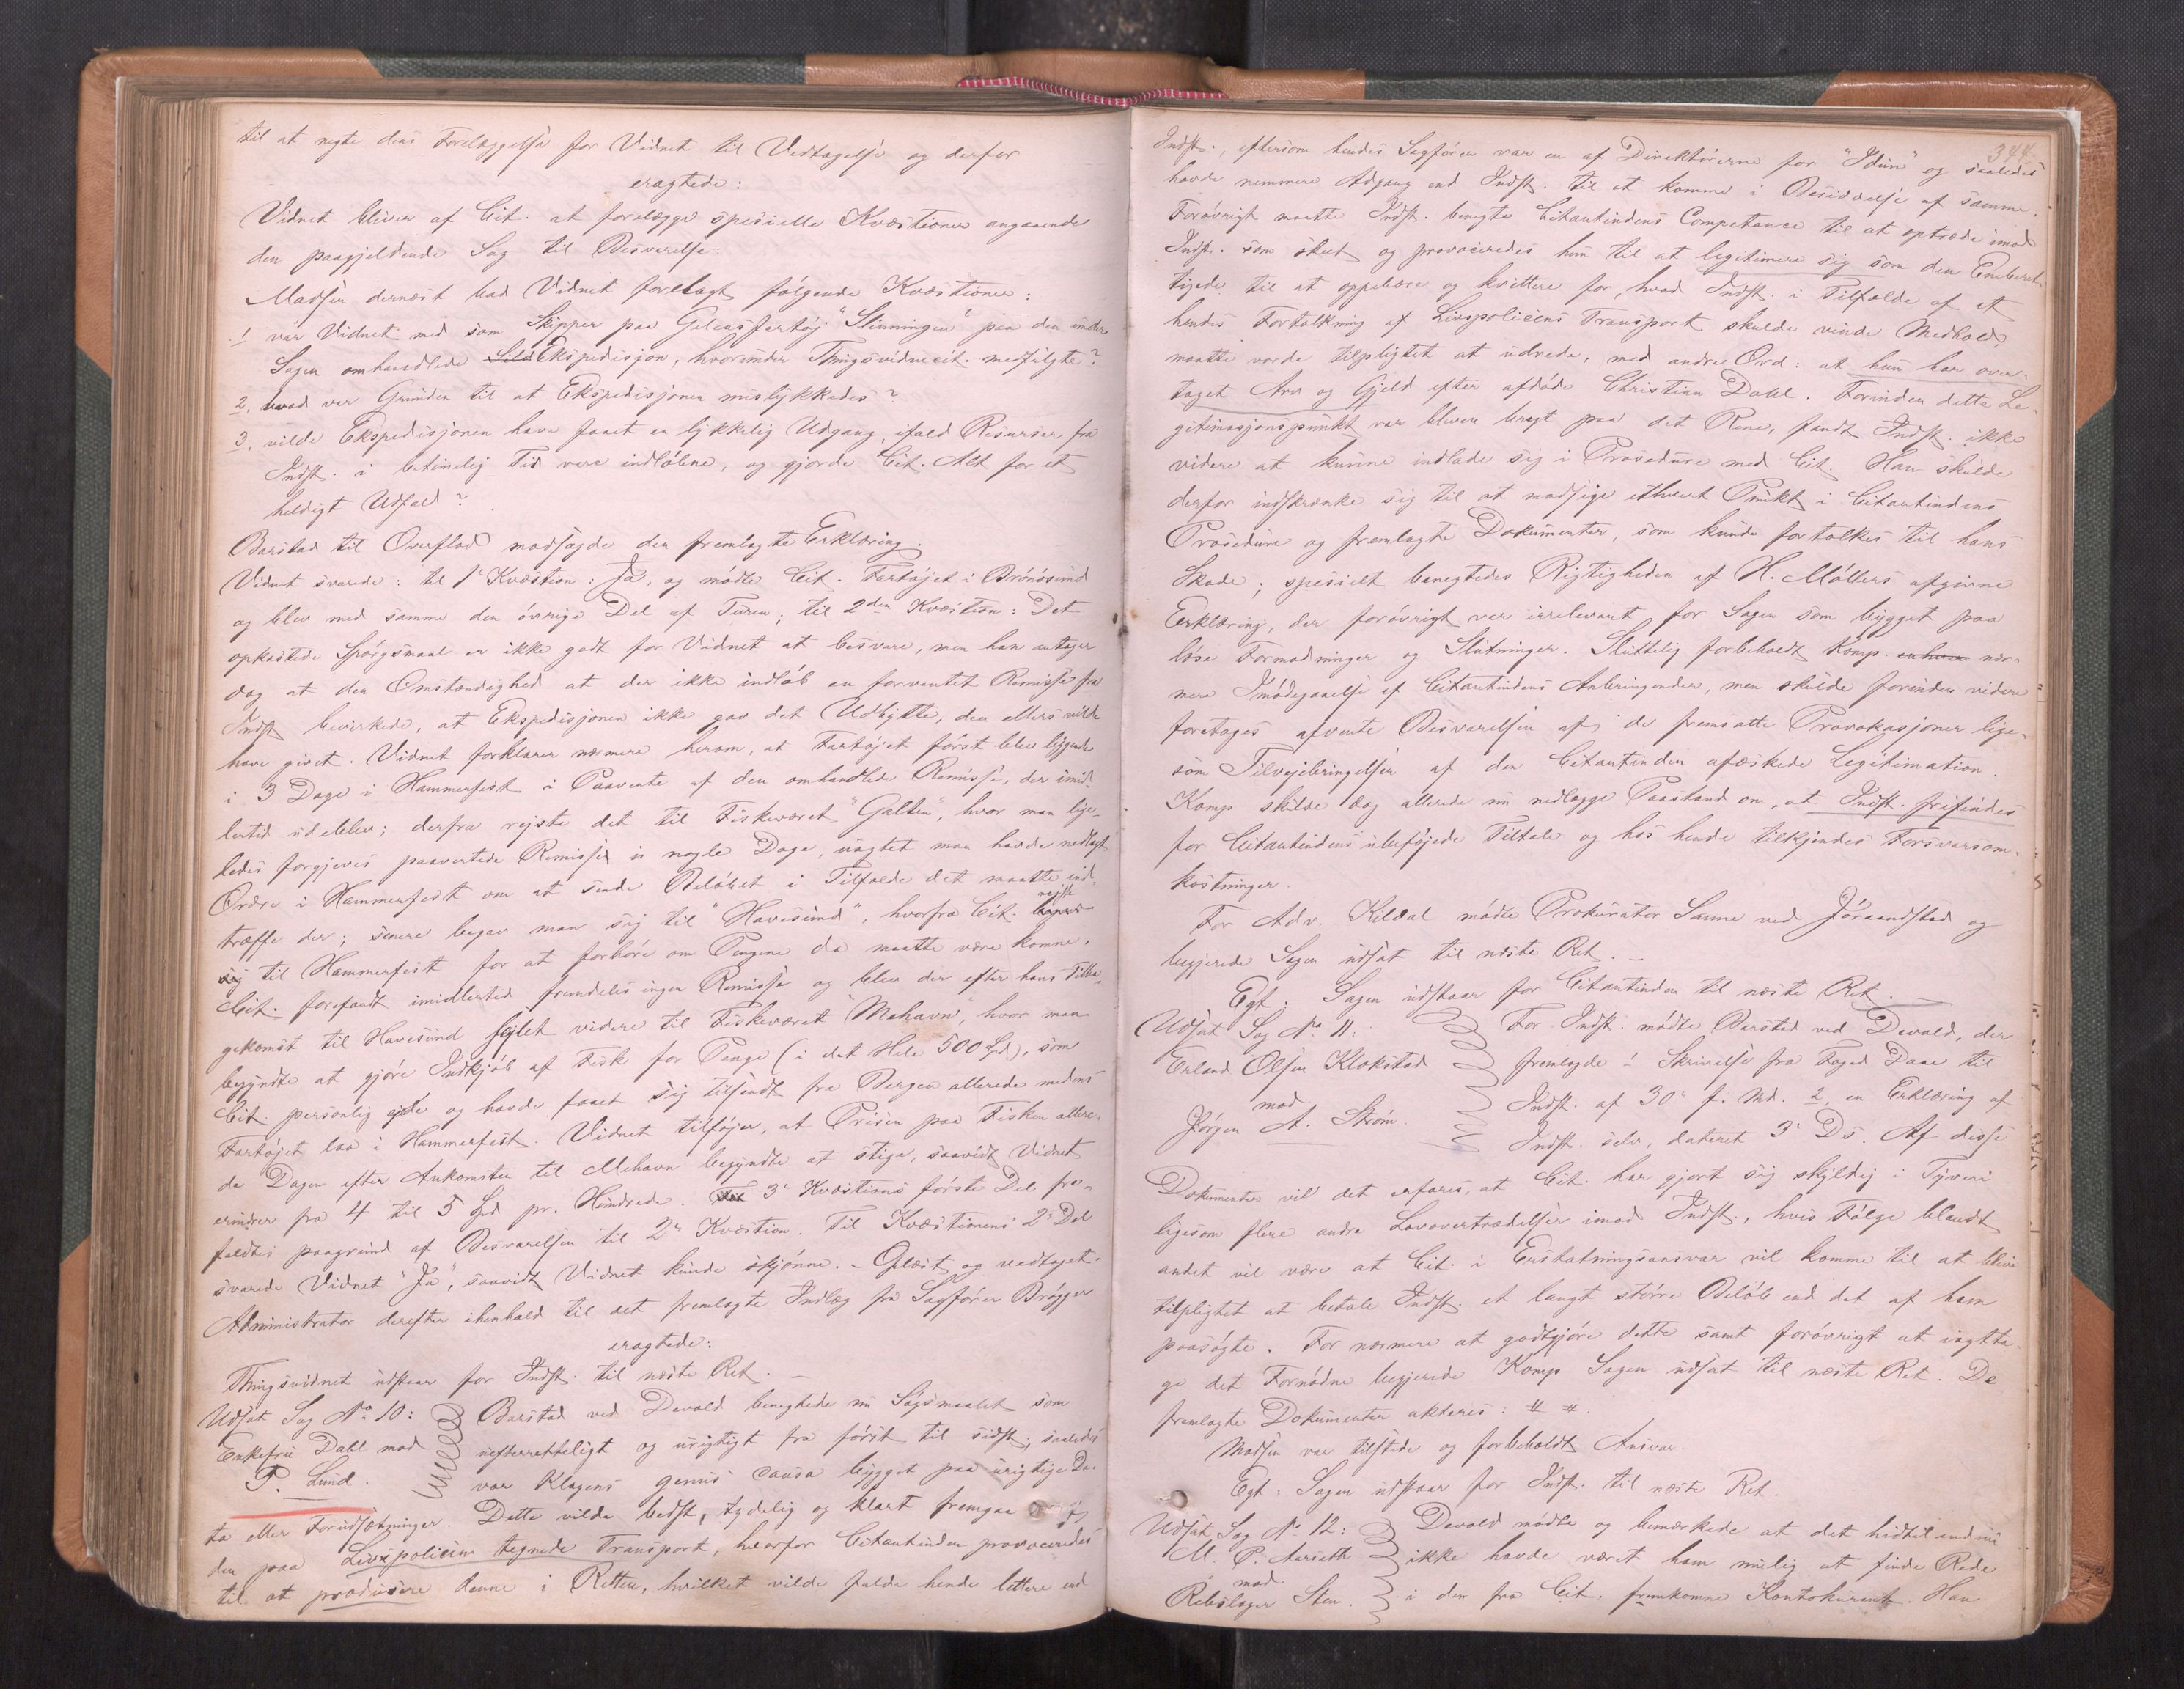 til at negte dens Forelæggelse for Vidnet til Vedtagelse og derfor
eragtede:
Vidnet bliver af Cit. at forelægge spesielle Kvæstioner angaaende
den paagjeldende Sag til Besvarelse.
Madsen dernæst bad Vidnet forelagt følgende Kvæstioner:
1 var Vidnet med som Skipper paa Galeasfartøj "Stinningen" paa den under
Sagen omhandlede Ekspedisjon, hvorunder Thingsvidnecit. medfulgte?
2, hvad var Grunden til at Ekspedisjonen mislykkedes?
3, vilde Ekspedisjonen have faaet en lykkelig Udgang, ifald Resurser fra
Indst. i betimelig Tid vare indløbne, og gjorde Cit. Alt for et
heldigt Udfald?
Barstad til Overflod modsagde den fremlagte Erklæring.
Vidnet svarede: til 1e Kvæstion: Ja, og mødte Cit. Fartøjet i Brønøsund
og blev med samme den øvrige Del af Turen; til 2den Kvæstion: Det
opkastede Spørgsmaal er ikke godt for Vidnet at besvare, men han antager
dog at den Omstændighed at der ikke indløb en forventet Remisse fra
Indst bevirkede, at Ekspedisjonen ikke gav det Udbytte, den ellers vilde
have givet. Vidnet forklarer nærmere herom, at Fartøjet først blev liggende
i 3 Dage i Hammerfest i Paavente af den omhandlede Remisse, der imid
lertid udeblev; derfra rejste det til Fiskeværet "Galten", hvor man lige-
ledes forgjeves paaventede Remisse in nogle Dage, uagtet man havde nedlagt
Ordre i Hammerfest om at sende Beløbet i Tilfælde det maatte ind-
træffe der; senere begav man sig til "Havesund", hvorfra Cit. rejste
til Hammerfest for at forhøre om Pengene da maatte være komne.
Cit. forefandt imidlertid fremdeles ingen Remisse og blev der efter hans Tilba-
gekomst til Havesund sejlet videre til Fiskeværet "Mehavn", hvor man
begyndte at gjøre Indkjøb af Fisk for Penge (i det Hele 500 Spd), som
Cit. personlig ejede og havde faaet sig tilsendt fra Bergen allerede medens
Fartøjet laa i Hammerfest. Vidnet tilføjer, at Prisen paa Fisken allere-
de Dagen efter Ankomsten til Mehavn begyndte at stige, saavidt Vidnet
erindrer fra 4 til 5 Spd pr. Hundrede. 3e Kvæstions første Del fra-
faldtes paagrund af Besvarelsen til 2n Kvæstion. Til Kvæstionens 2e Del
svarede Vidnet "Ja", saavidt Vidnet kunde skjønne. - Oplæst og vedtaget.
Administrator derefter ihenhold til det fremlagte Indlæg fra Sagfører Brøgger
eragtede:
Thingsvidnet udstaar for Indst. til næste Ret. -
Udsat Sag No 10: Barstad ved Devold benegtede nu Søgsmaalet som
Enkefru Dahl mod uefterretteligt og urigtigt fra først til sidst; saaledes
P. Lund. var Klagens genus causa bygget paa urigtige Da-
ta eller Forudsætninger. Dette vilde bedst, tydelig og klart fremgaa
den paa Livspolicen tegnede Transport, hvorfor Citantinden provoceredes
til at producere denne i Retten, hvilket vilde falde hende lettere end
344
Indst., eftersom hendes Sagfører var en af Direktørerne for "Idun" og saaledes
havde nemmere Adgang end Indst. til at komme i Besiddelse af samme.
Forøvrigt maatte Indst. benegte Citantindens Competance til at optræde imod
Indst. som skeet og provoceredes hun til at legitimere sig som den Eneberet-
tigede til at oppebære og kvittere for, hvad Indst. i Tilfælde af at
hendes Fortolkning af Livspolicens Transport skulde vinde Medhold,
maatte vorde tilpligtet at udrede, med andre Ord: at hun har over-
taget Arv og Gjeld efter afdøde Christian Dahl. Forinden dette Le-
gitimasjonspunkt var bleven bragt paa det Rene, fandt Indst. ikke
videre at kunne indlade sig i Prosedure med Cit. Han skulde
derfor indskrænke sig til at modsige ethvert Punkt i Citantindens
Prosedure og fremlagte Dokumenter, som kunde fortolkes til hans
Skade; spesielt benegtedes Rigtigheden af H. Møllers afgivne
Erklæring, der forøvrigt var irrelevant for Sagen som bygget paa
løse Formodninger og Slutninger. Sluttelig forbeholdt Komp. enhver nær-
mere Imødegaaelse af Citantindens Anbringender, men skulde forinden videre
foretages afvente Besvarelsen af de fremsatte Provokasjoner lige-
som Tilvejebringelsen af den Citantinden afæskede Legitimation.
Komp skulde dog allerede nu nedlægge Paastand om, at Indst. frifindes
for Citantindens ubeføjede Tiltale og hos hende tilkjendes Forsvarsom-
kostninger.
For Adv. Kildal mødte Prokurator Sanne ved Jøraandstad og
begjerede Sagen udsat til næste Ret. -
Egt: Sagen udstaar for Citantinden til næste Ret. -
Udsat Sag No 11: For Indst. mødte Barstad ved Devold, der
Erland Olsen Klokstad fremlagde 1 Skrivelse fra Foged Daae til
mod Indst. af 30e f. Md. 2, en Erklæring af
Jørgen A. Strøm. Indst. selv, dateret 3e Ds. Af disse
Dokumenter vil det erfares, at Cit. har gjort sig skyldig i Tyveri
ligesom flere andre Lovovertrædelser imod Indst., hvis Følge blandt
andet vil være at Cit. i Erstatningsansvar vil komme til at blive
tilpligtet at betale Indst. et langt større Beløb end det af ham
paasøgte. For nærmere at godtgjøre dette samt forøvrigt at iagtta-
ge det Fornødne begjerede Komp Sagen udsat til næste Ret. De
fremlagte Dokumenter akteres: # #.
Madsen var tilstede og forbeholdt Ansvar.
Egt: Sagen udstaar for Indst. til næste Ret.
Udsat Sag No 12: Devold mødte og bemærkede at det hidtil endnu
M. P. Aarseth ikke havde været ham mulig at finde Rede
mod
Rebslager Sten. i den fra Cit. fremkomne Kontokurant. Han